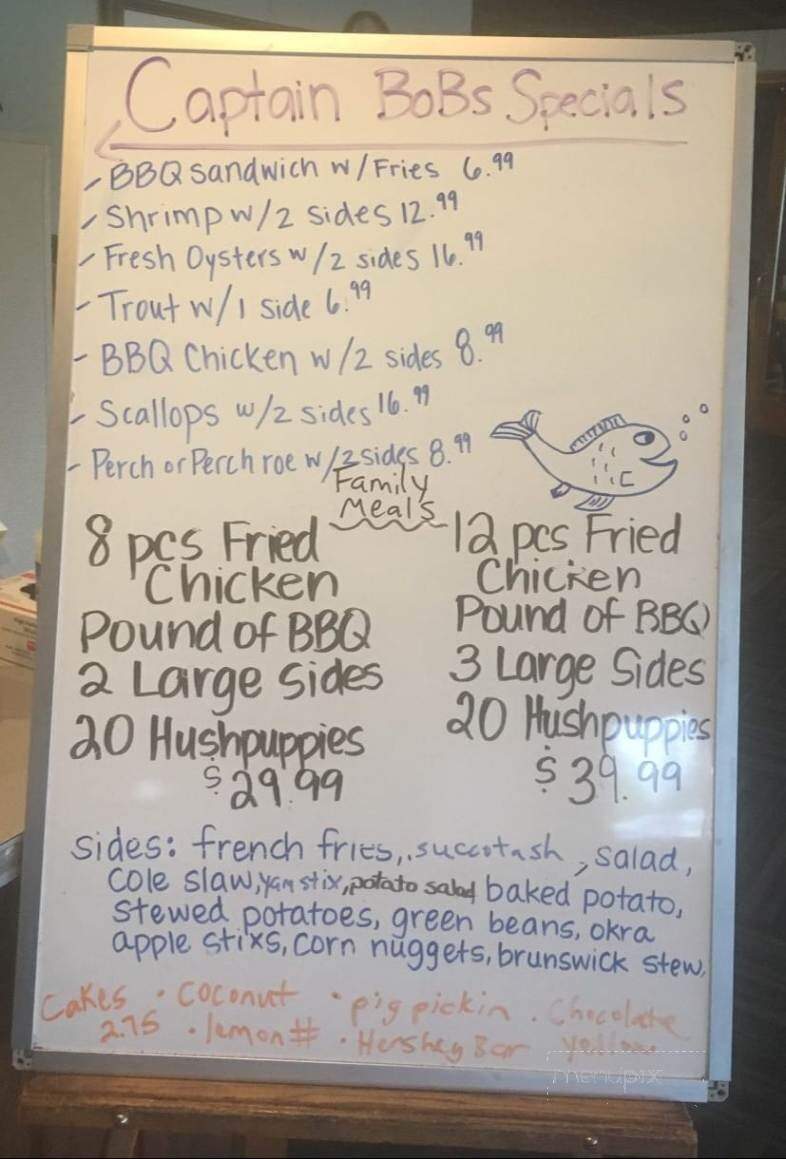 Captain BoBs Specials
- BBQ sandwich w/Fries 6.99
- Shrimp w/2 sides 12.99
- Fresh Oysters w/2 sides 16.99
- Trout w/1 side 6.99
- BBQ Chicken w/2 sides 8.99
- Scallops w/2 sides 16.99
- Perch or Perch roe w/2 sides 8.99
Family
Meals
8 pcs Fried
Chicken
Pound of BBQ
2 Large Sides
20 Hushpuppies
$29.99
12 pcs Fried
Chicken
Pound of BBQ
3 Large Sides
20 Hushpuppies
$39.99
Sides: french fries, succotash, salad,
cole slaw, yam stix, potato salad baked potato,
stewed potatoes, green beans, okra
apple stixs, corn nuggets, brunswick stew,
Cakes · coconut · pig pickin · Chocolate
2.75 · lemon # · Hershey Bar yellow
menupix